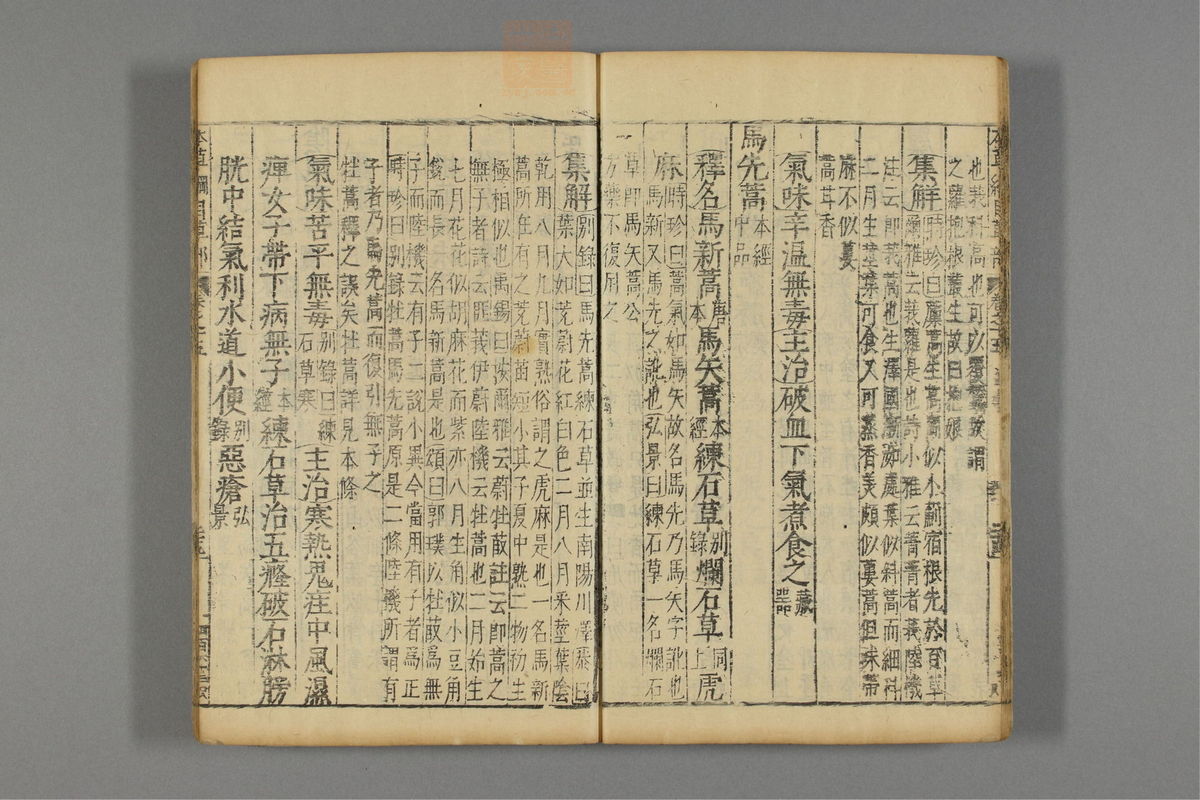 也莪科高也可以覆蠶故謂
之蘿抱根叢生故曰抱娘
集解時珍曰麢蒿生高崗似小薊宿根先於百草
爾雅云莪蘿是也詩小雅云菁菁者莪陸機
注云即莪蒿也生澤國漸洳處葉似斜蒿而細科
二月生莖葉可食又可蒸香美頗似蔞蒿但味帶
麻不似蔞
蒿甘香
氣味辛温無毒主治破血下氣煮食之藏器
馬先蒿本經中品
釋名馬新蒿唐本馬矢蒿本經練石草别錄爛石草同上虎
麻時珍曰蒿氣如馬矢故名馬先乃馬矢字訛也
馬新又馬先之訛也弘景曰練石草一名爛石
草即馬矢蒿公
方藥不復用之
集解别錄曰馬先蒿練石草並生南陽川澤恭曰
葉大如茺蔚花紅白色二月八月采莖葉陰
乾用八月九月實熟俗謂之虎麻是也一名馬新
蒿所在有之茺蔚苗短小其子夏中熟二物初生
極相似也禹錫曰按爾雅云蔚牡菣註云即蒿之
無子者詩云匪莪伊蔚陸機云牡蒿也二月始生
七月花花似胡麻花而紫亦八月生角似小豆角
銳而長一名馬新蒿是也頌曰郭璞以牡菣爲無
子而陸機云有子二說小異今當用有子者爲正
時珍曰别錄牡蒿馬先蒿原是二條陸機所謂有
子者乃馬先蒿而復引無子之
牡蒿釋之誤矣牡蒿詳見本條
氣味苦平無毒别錄曰練石草寒主治寒熱鬼疰中風濕
痺女子帶下病無子本經練石草治五癃破石淋膀
胱中結氣利水道小便别錄惡瘡弘景